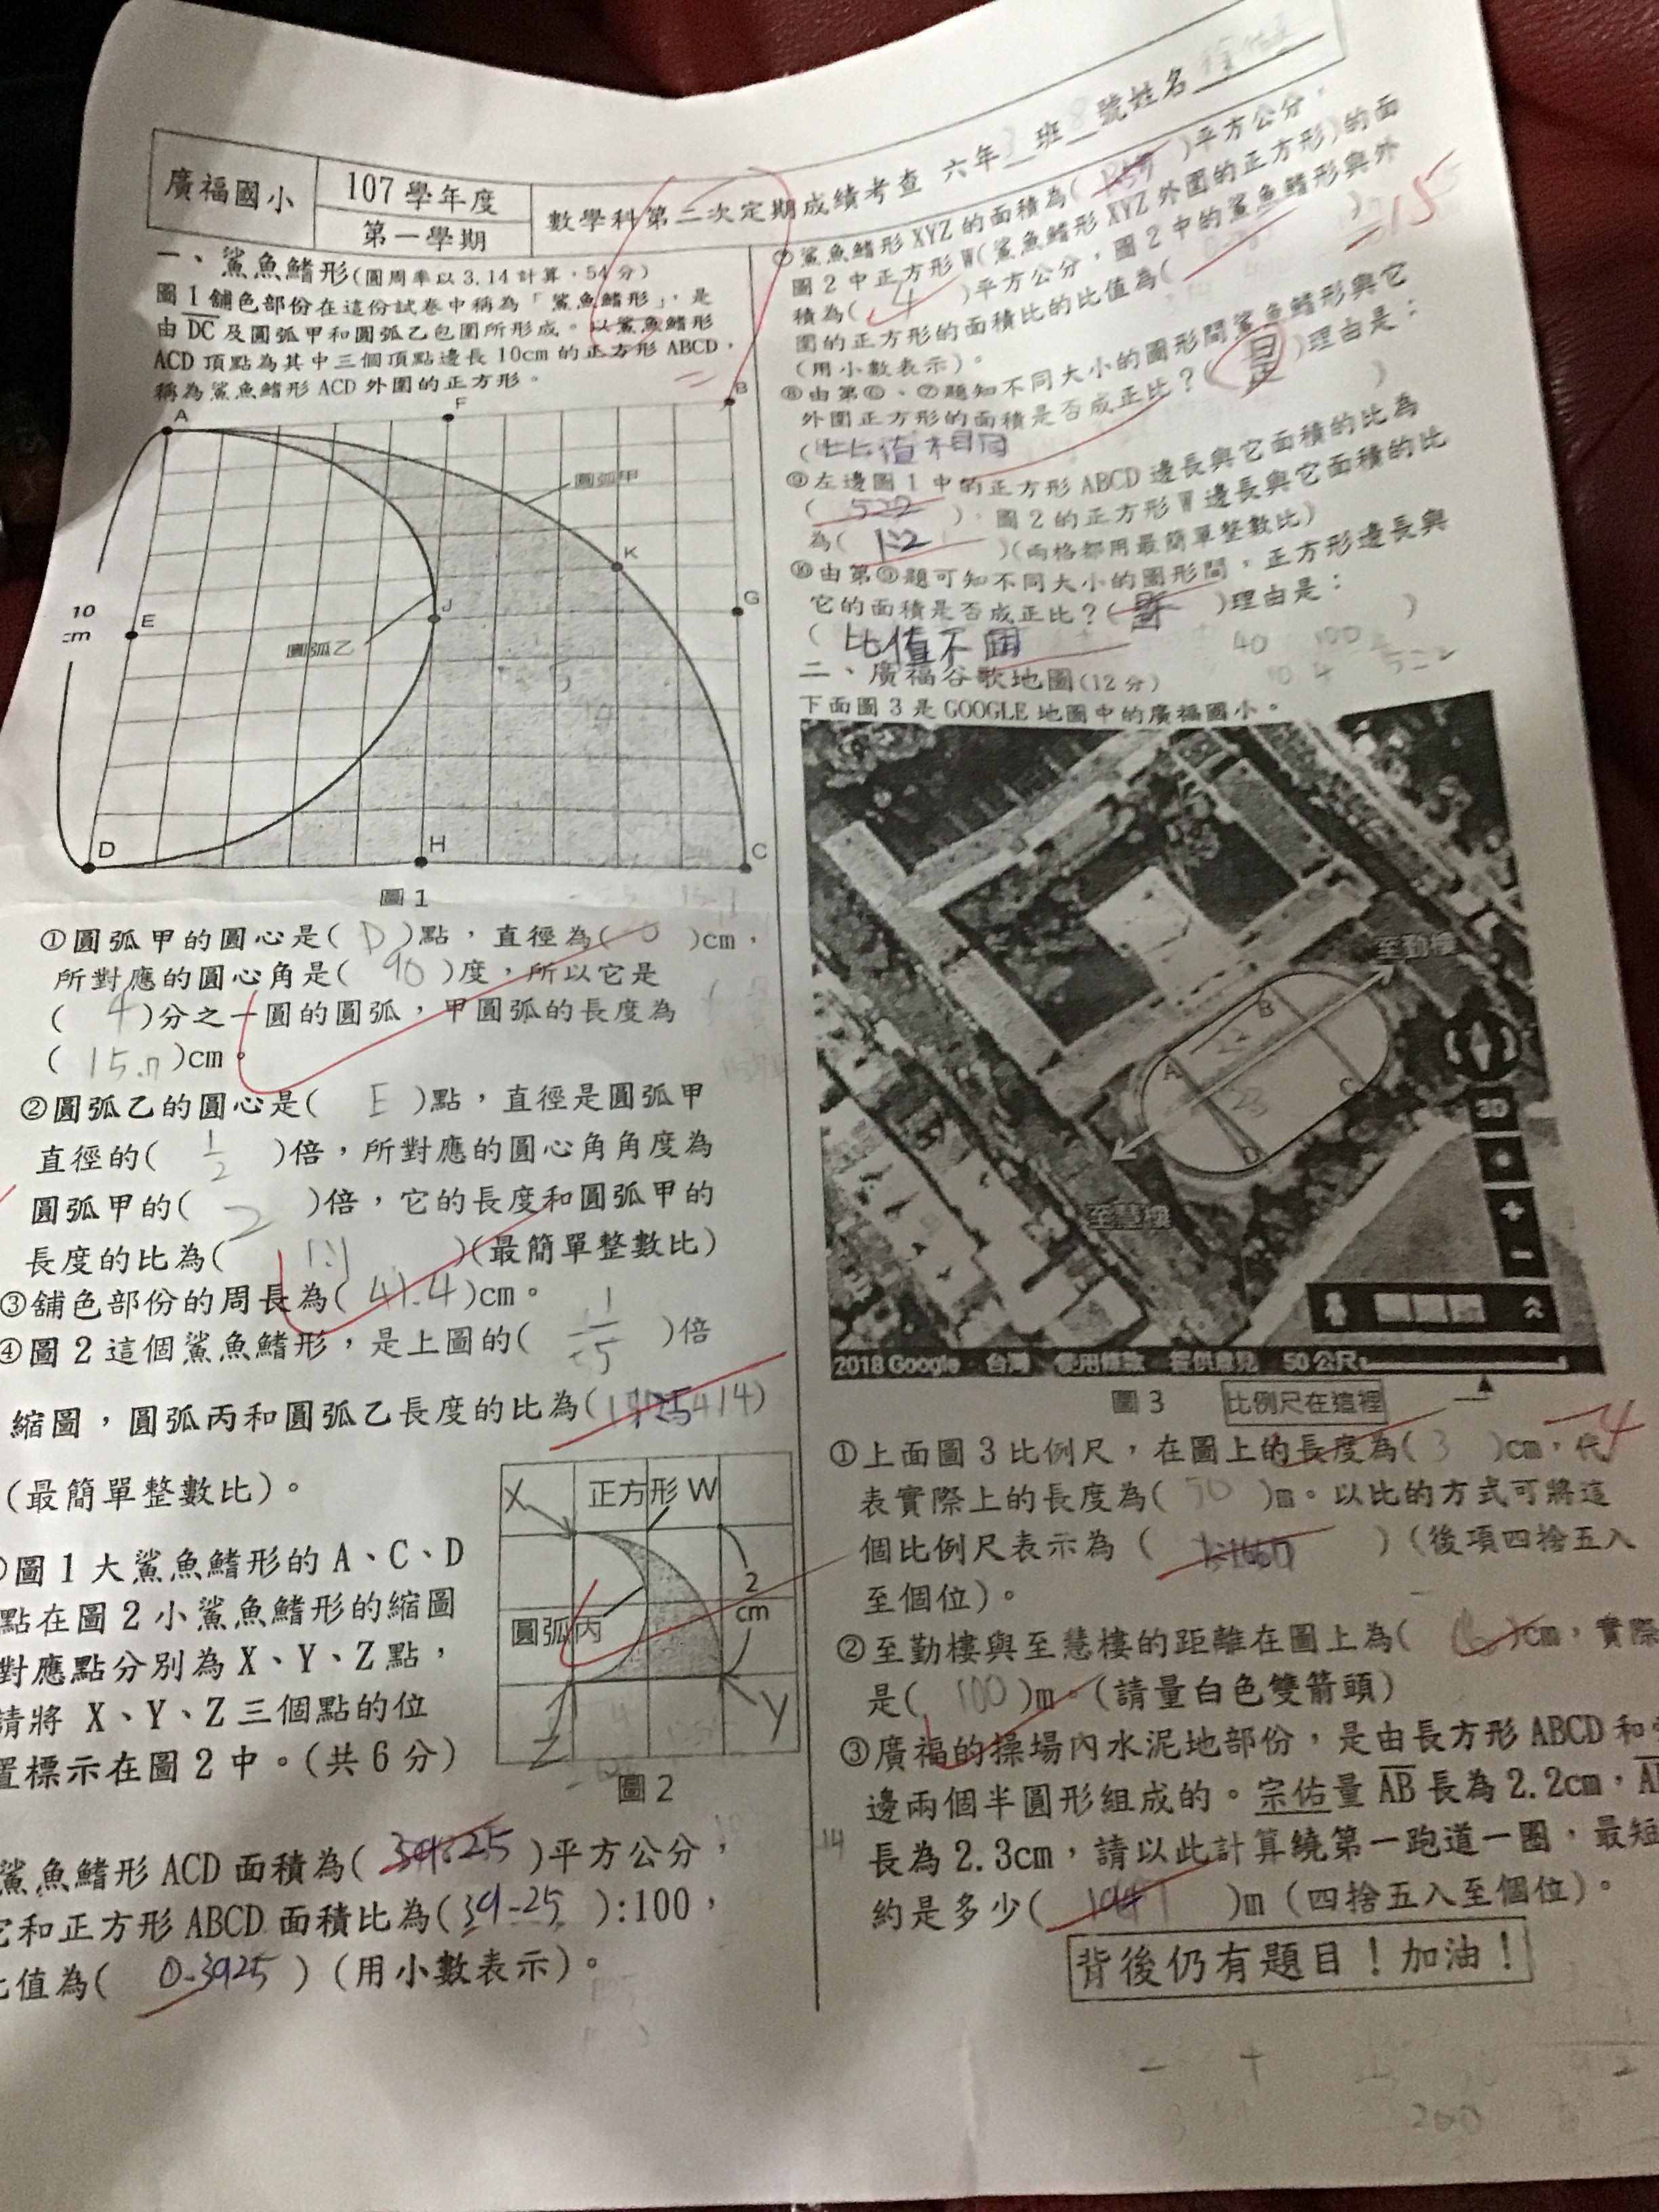 廣福國小
107 學年度
第一學期
數學科第二次定期成績考查 六年3班8號姓名
一、鯊魚鰭形(圓周率以 3.14 計算,54 分)
圖 1 舖色部份在這份試卷中稱為「鯊魚鰭形」,是
由 DC 及圓弧甲和圓弧乙包圍所形成。以鯊魚鰭形
ACD 頂點為其中三個頂點邊長 10cm 的正方形 ABCD,
稱為鯊魚鰭形 ACD 外圍的正方形。
A
F
B
圓弧甲
K
10
cm
E
J
G
圓弧乙
D
H
C
圖 1
①圓弧甲的圓心是( D )點,直徑為( )cm,
所對應的圓心角是( 90 )度,所以它是
( 4 )分之一圓的圓弧,甲圓弧的長度為
( 15.7 )cm。
②圓弧乙的圓心是( E )點,直徑是圓弧甲
直徑的( 1/2 )倍,所對應的圓心角角度為
圓弧甲的( 2 )倍,它的長度和圓弧甲的
長度的比為( 1:1 )(最簡單整數比)
③舖色部份的周長為( 41.4 )cm。
④圖 2 這個鯊魚鰭形,是上圖的( 1/5 )倍
縮圖,圓弧丙和圓弧乙長度的比為( )
(最簡單整數比)。
圖 1 大鯊魚鰭形的 A、C、D
點在圖 2 小鯊魚鰭形的縮圖
對應點分別為 X、Y、Z 點,
請將 X、Y、Z 三個點的位
置標示在圖 2 中。(共 6 分)
X
正方形 W
2
cm
圓弧丙
Z
Y
圖 2
鯊魚鰭形 ACD 面積為( 39.25 )平方公分,
它和正方形 ABCD 面積比為( 39.25 ):100,
比值為( 0.3925 )(用小數表示)。
⑦鯊魚鰭形 XYZ 的面積為( )平方公分,
圖 2 中正方形 W(鯊魚鰭形 XYZ 外圍的正方形)的面
積為( 4 )平方公分,圖 2 中的鯊魚鰭形與外
圍的正方形的面積比的比值為( )
(用小數表示)。
-15
⑧由第⑥、⑦題知不同大小的圖形間鯊魚鰭形與它
外圍正方形的面積是否成正比?( 是 )理由是:
( 比值相同 )
⑨左邊圖 1 中的正方形 ABCD 邊長與它面積的比為
( 5:2 ),圖 2 的正方形 W 邊長與它面積的比
為( 1:2 )(兩格都用最簡單整數比)
⑩由第⑨題可知不同大小的圖形間,正方形邊長與
它的面積是否成正比?( )理由是:
( 比值不同 )
二、廣福谷歌地圖(12 分)
下面圖 3 是 GOOGLE 地圖中的廣福國小。
至勤樓
B
A
C
D
至慧樓
3D
2018 Google 台灣 使用條款 提供意見 50 公尺
圖 3
比例尺在這裡
-4
①上面圖 3 比例尺,在圖上的長度為( 3 )cm,代
表實際上的長度為( 50 )m。以比的方式可將這
個比例尺表示為( )(後項四捨五入
至個位)。
②至勤樓與至慧樓的距離在圖上為( 6 )cm,實際
是( 100 )m。(請量白色雙箭頭)
③廣福的操場內水泥地部份,是由長方形 ABCD 和
邊兩個半圓形組成的。宗佑量 AB 長為 2.2cm,
長為 2.3cm,請以此計算繞第一跑道一圈,最短
約是多少( )m(四捨五入至個位)。
背後仍有題目!加油!